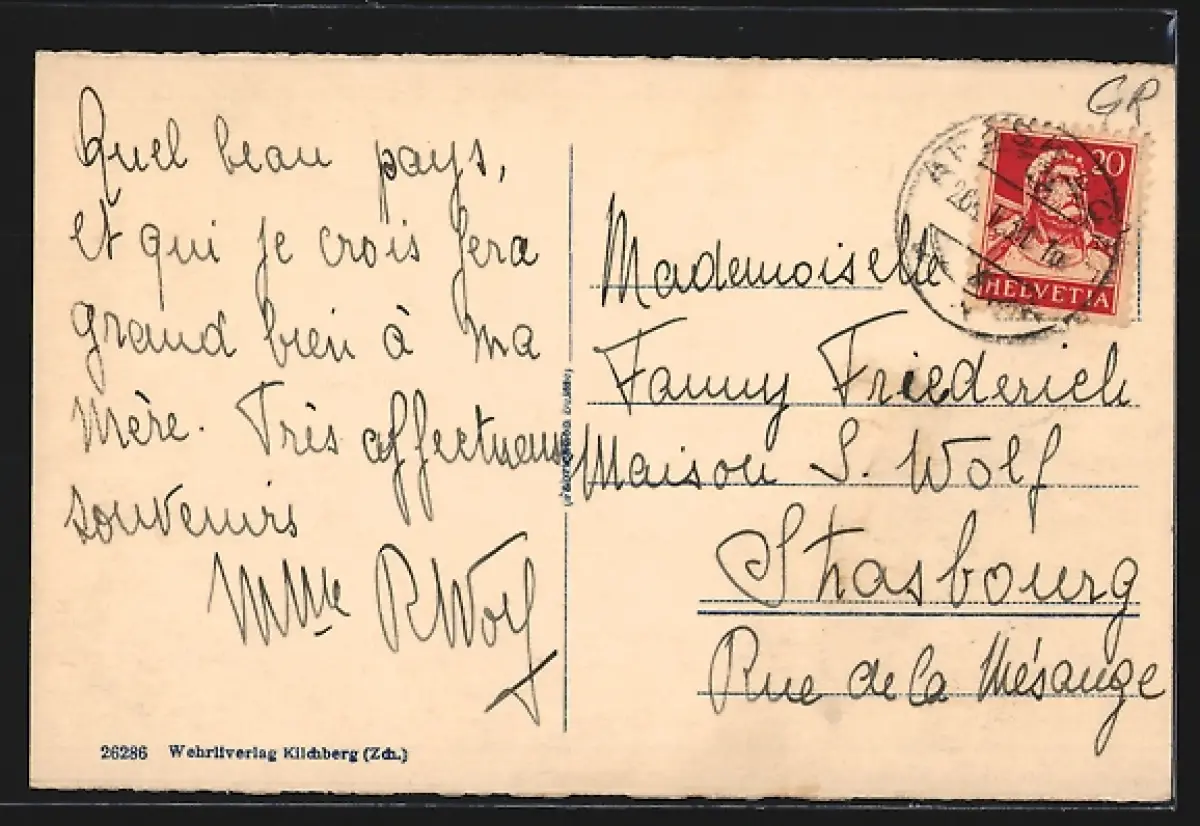 Quel beau pays,
et qui je crois fera
grand bien à ma
mère. Très affectueux
souvenirs
Mme R Wolf
26286 Wehrliverlag Kilchberg (Zch.)
GR
20
HELVETIA
Mademoiselle
Fanny Friederich
Maison S. Wolf
Strasbourg
Rue de la Mésange